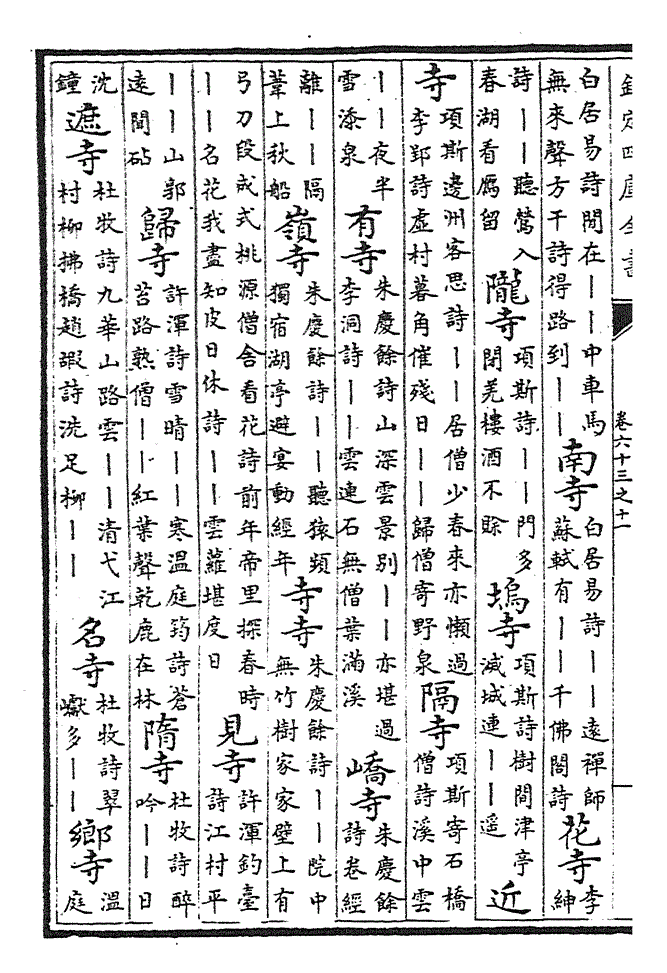 欽定四庫全書
卷六十三之十一
白居易詩閒在丨丨中車馬無來聲方干詩得路到丨丨南寺白居易詩丨丨遠禪師蘇軾有丨丨千佛閣詩花寺李紳
詩丨丨聽鶯入春湖看鴈留隴寺項斯詩丨丨門多閉羌樓酒不賒塢寺項斯詩樹間津亭減城連丨丨遥近
寺項斯邊州客思詩丨丨居僧少春來亦懶過李郢詩虛村暮角催殘日丨丨歸僧寄野泉隔寺項斯寄石橋僧詩溪中雲
丨丨夜半雪添泉有寺朱慶餘詩山深雲景别丨丨亦堪過李洞詩丨丨雲連石無僧葉滿溪嶠寺朱慶餘詩卷經
離丨丨隔葦上秋船嶺寺朱慶餘詩丨丨聽猿頻獨宿湖亭避宴動經年寺寺朱慶餘詩丨丨院中無竹樹家家壁上有
弓刀段成式桃源僧舍看花詩前年帝里探春時丨丨名花我盡知皮日休詩丨丨雲蘿堪度日見寺許渾釣臺詩江村平
丨丨山郭遠聞砧歸寺許渾詩雪晴丨丨寒温庭筠詩蒼苔路熟僧丨丨紅葉聲乾鹿在林隋寺杜牧詩醉吟丨丨日
沈鐘遮寺杜牧詩九華山路雲丨丨清弋江村柳拂橋趙嘏詩洗足柳丨丨名寺杜牧詩翠巘多丨丨鄉寺温庭